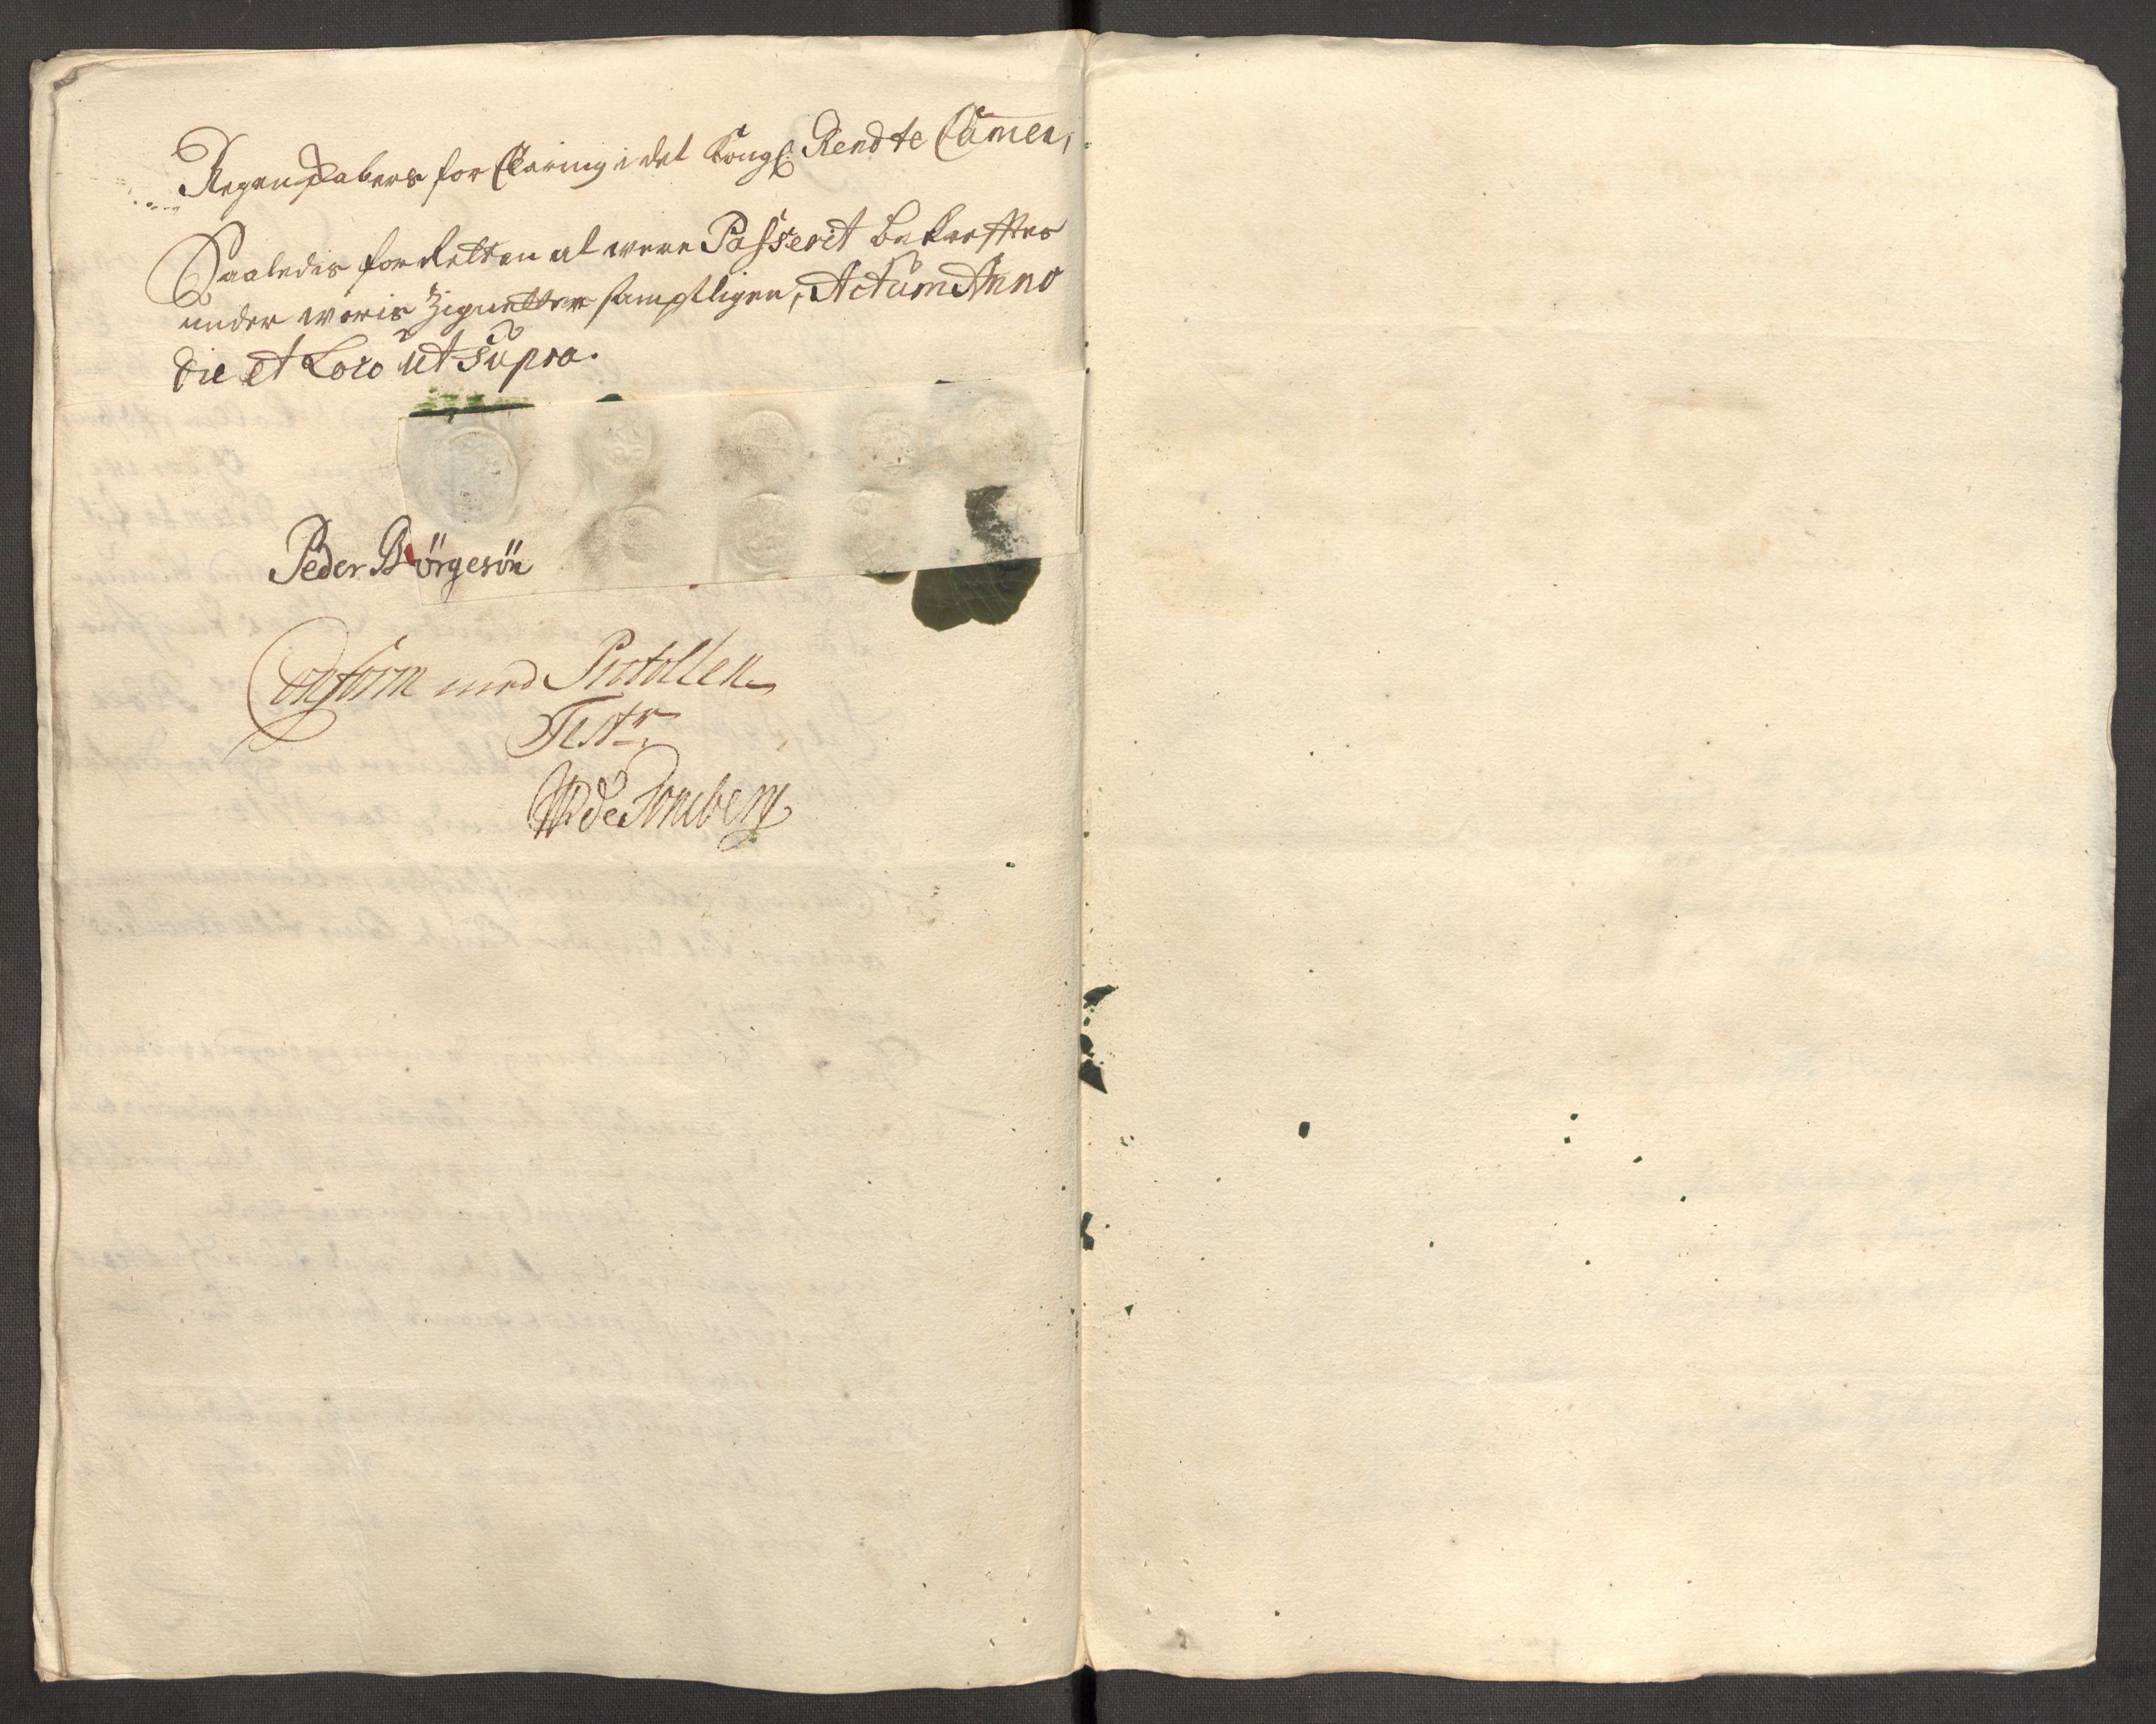 Regenskabers for Claring i det Kongl: Rendte Camer,
Saaledis for Retten at were Passerit bekreftes
under woris Zignetter samptligen, Actum Anno
die et Loco ut supra.
Peder Börgesön
Conform med Protollen
Test: